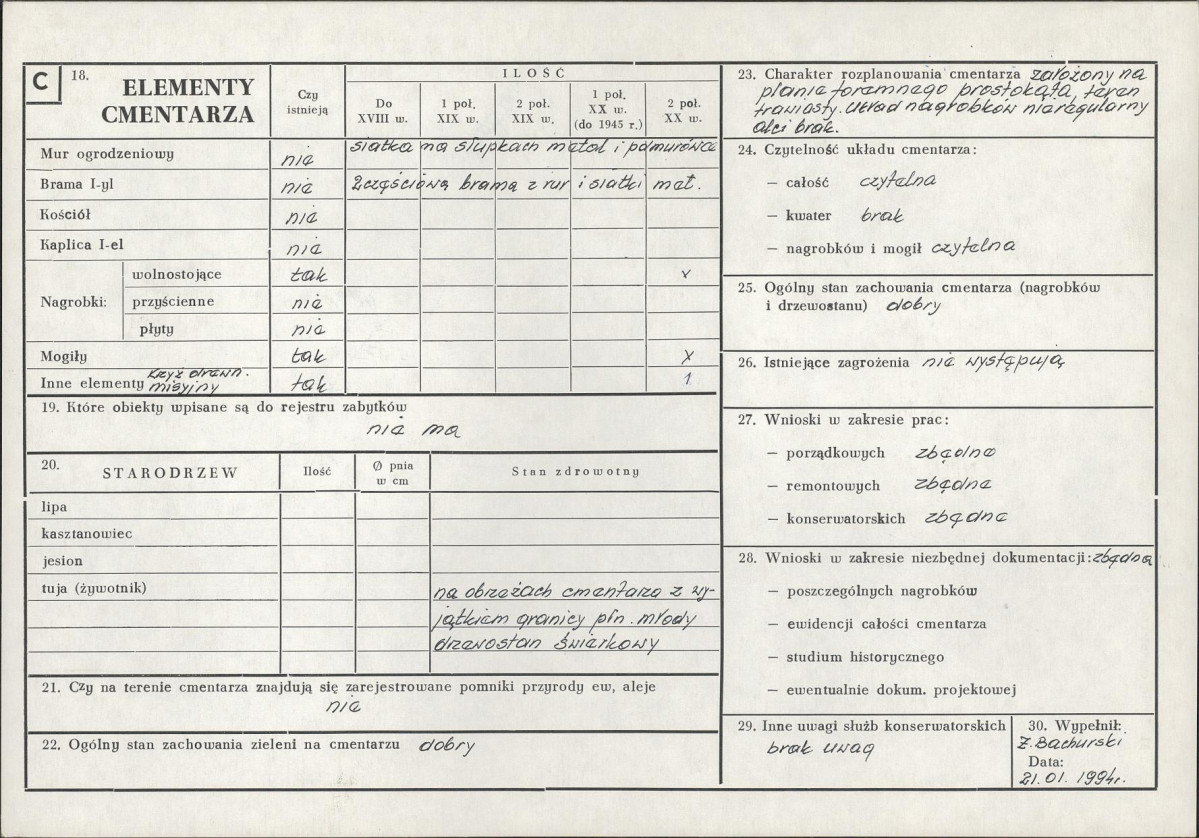 C
18.
ELEMENTY
CMENTARZA
Czy
istnieją
ILOŚĆ
Do
XVIII w.
1 poł.
XIX w.
2 poł.
XIX w.
1 poł.
XX w.
(do 1945 r.)
2 poł.
XX w.
Mur ogrodzeniowy nie siatka na słupkach metal i podmurówce
Brama I-yl nie 2częściowa brama z rur i siatki met.
Kościół nie
Kaplica I-el nie
Nagrobki:
wolnostojące tak v
przyścienne nie
płyty nie
Mogiły tak X
Inne elementy krzyż drewn.
misyjny tak 1
19. Które obiekty wpisane są do rejestru zabytków
nie ma
20. STARODRZEW Ilość Ø pnia
w cm
Stan zdrowotny
lipa
kasztanowiec
jesion
tuja (żywotnik) na obrzeżach cmentarza z wy-
jątkiem granicy płn. młody
drzewostan świerkowy
21. Czy na terenie cmentarza znajdują się zarejestrowane pomniki przyrody ew, aleje
nie
22. Ogólny stan zachowania zieleni na cmentarzu dobry
23. Charakter rozplanowania cmentarza założony na
planie foremnego prostokąta, teren
trawiasty. Układ nagrobków nieregularny
alei brak.
24. Czytelność układu cmentarza:
— całość czytelna
— kwater brak
— nagrobków i mogił czytelna
25. Ogólny stan zachowania cmentarza (nagrobków
i drzewostanu) dobry
26. Istniejące zagrożenia nie występują
27. Wnioski w zakresie prac:
— porządkowych zbędne
— remontowych zbędne
— konserwatorskich zbędne
28. Wnioski w zakresie niezbędnej dokumentacji: zbędna
— poszczególnych nagrobków
— ewidencji całości cmentarza
— studium historycznego
— ewentualnie dokum. projektowej
29. Inne uwagi służb konserwatorskich
brak uwag
30. Wypełnił:
Z. Bachurski
Data:
21.01.1994r.